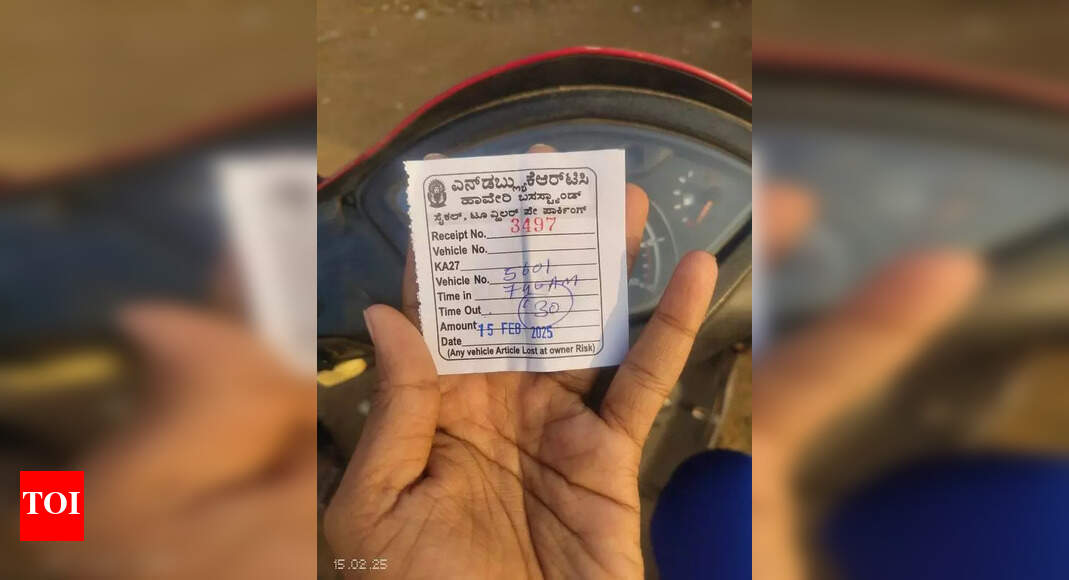 ಎನ್‌ಡಬ್ಲ್ಯುಕೆಆರ್‌ಟಿಸಿ
ಹಾವೇರಿ ಬಸಸ್ಟ್ಯಾಂಡ್
ಸೈಕಲ್, ಟೂ ವ್ಹಿಲರ್ ಪೇ ಪಾರ್ಕಿಂಗ್
Receipt No. 3497
Vehicle No.
KA27
Vehicle No. 5601
Time in AM
Time Out
Amount 30
Date 15 FEB 2025
(Any vehicle Article Lost at owner Risk)
TOI
15.02.25